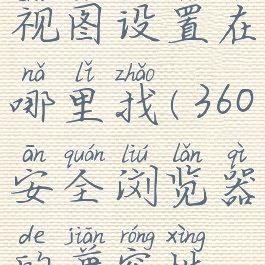 视图设置在
nǎ lǐ zhǎo
哪里找(360
ān quán liú lǎn qì
安全浏览器
de jiān róng xìng
的兼容性